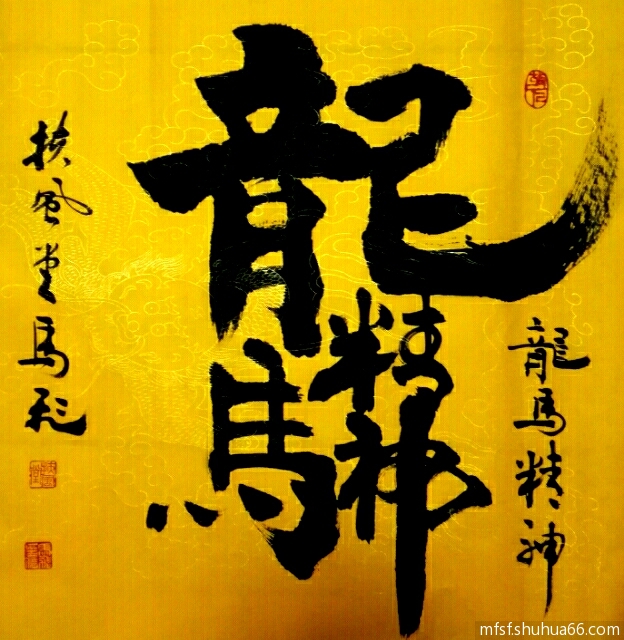 龍馬精神
龍馬精神
扶風堂馬
mfsf.shuhua66.com